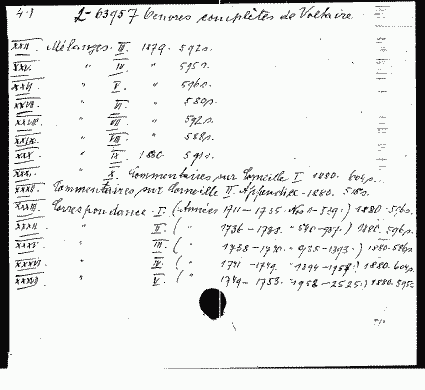 4.) 2-63957 Oeuvres complètes de Voltaire.
XXIV. Mélanges. III. 1879. 592s.
XXV. " IV " 595s.
XXVI " V. " 596s.
XXVII. " VI " 580s.
XXVIII. " VII " 592s.
XXIX. " VIII " 588s.
XXX " IX 1880. 591s.
XXXI. " X. Commentaires sur Corneille I. 1880. 604s.
XXXII. Commentaires sur Corneille II. Appendice. 1880. 518s.
XXXIII. Correspondance. I. (Années 1711-1735. Nos 1-539.) 1880. 576s.
" II. (" 1736-1738. " 540-987.) 1880. 596s.
XXXV. " III. (" 1738-1740. " 1393.) 1880. 586s.
XXXVI " IV. (" 1741-1749. " 1394-1957.) 1880. 604s.
XXXVII " V. (" 1749-1753. " 1958-2525.) 1880. 595s.